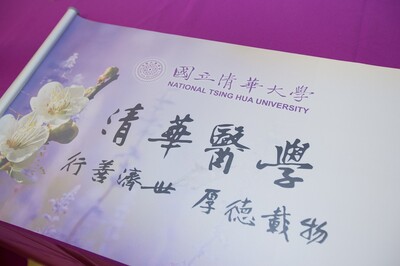 國立清華大學
NATIONAL TSING HUA UNIVERSITY
清華醫學
行善濟世 厚德載物